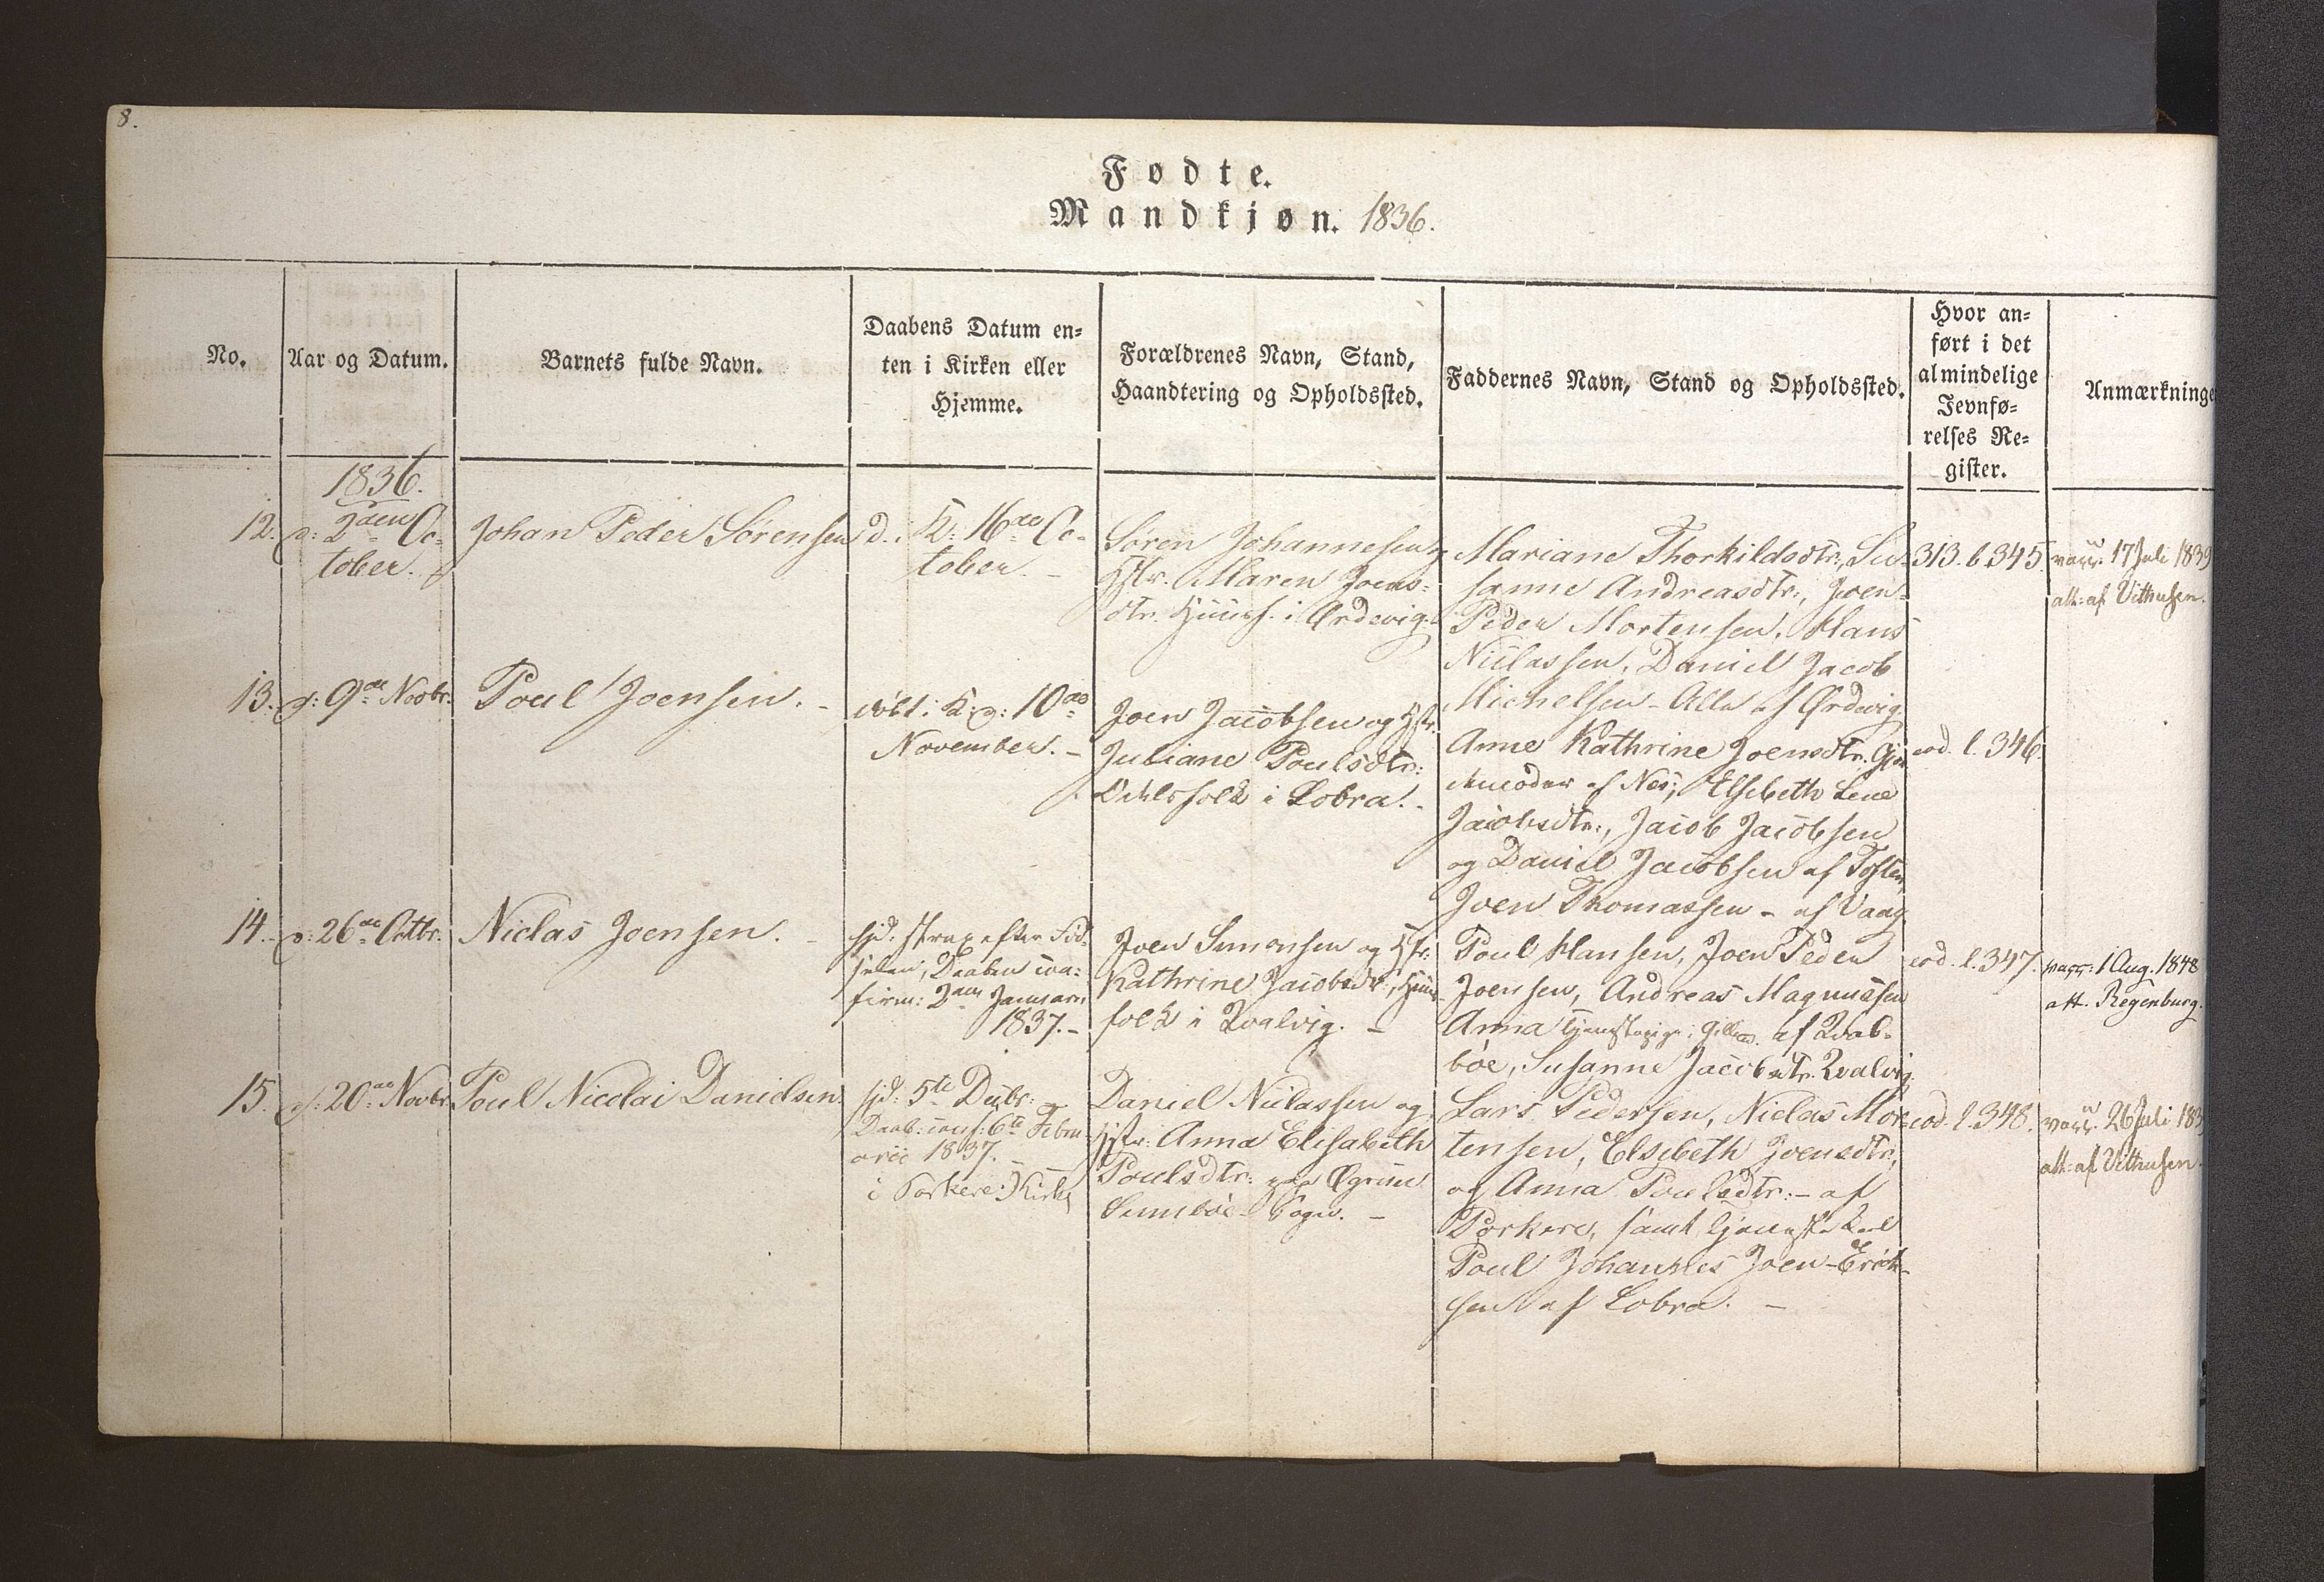 8.
Fødte.
Mandkjøn. 1836.
No.
Aar og Datum.
Barnets fulde Navn.
Daabens Datum en-
ten i Kirken eller
Hjemme.
Forældrenes Navn, Stand,
Haandtering og Opholdssted.
Faddernes Navn, Stand og Opholdssted.
Hvor an-
ført i det
almindelige
Jevnfø-
relses Re-
gister.
Anmærkninge
1836.
12.
d: 2den Oc-
tober.
Johan Peder Sörensen
d. i K: 16de Oc-
tober. -
Sören Johannesen
Hstr. Maren Joens-
dtr. Huusf. i Ördevig.
Mariane Thorkildsdtr., Su-
sanne Andreasdtr., Joen
Peder Mortensen, Hans
Niclassen, Daniel Jacob
Michelsen - Alle af Ördevig.
313. l. 345.
vacc. 17 Juli 1839
att: af Vithusen.
13.
d: 9de Novbr.
Poul Joensen. -
döbt i K: d: 10de
November. -
Joen Jacobsen og Hstr.
Juliane Poulsdtr:
Odelsfolk i Lobra. -
Anne Kathrine Joensdtr. Gjor-
demoder af Nes, Elsebeth Lene
Jacobsdtr., Jacob Jacobsen
og Daniel Jacobsen af
Joen Thomassen - af Vaag
eod. l. 346.
14.
d: 26de Octbr.
Niclas Joensen. -
hjd. strax efter Föd-
selen, Daaben con-
firm: 2den Januari
1837. -
Joen Simonsen og Hstr:
Kathrine Jacobsdtr., Huus-
folk i Qvalvig. -
Poul Hansen, Joen Peder
Joensen, Andreas Magnussen
Anna Tjenestepige af Qvab-
böe, Susanne Jacobsdtr. Qvalvig
eod. l. 347.
vacc: 1 Aug. 1848
att. Regenburg.
15.
d: 20de Novbr
Poul Nicolai Danielsen.
hjd: 5te Decbr:
Daab: conf: 6te Febru-
arii 1837. -
i Porkere Kirke
Daniel Niclassen og
Hstr: Anna Elisabeth
Poulsdtr: paa Ögrim
Sumböe Sogn. -
Lars Pedersen, Niclas Mor-
tensen, Elsebeth Joensdtr,
og Anna Poulsdtr: - af
Porkere, samt Tjenestekarl
Poul Johannes Joen-Erich-
sen af Lobra. -
eod. l. 348.
vacc. 26 Juli 183
att: af Vithusen.